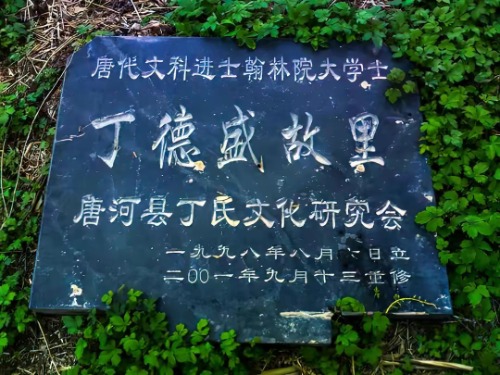 唐代文科进士翰林院大学士
丁德盛故里
唐河县丁氏文化研究会
一九九八年八月 日立
二00一年九月十三重修